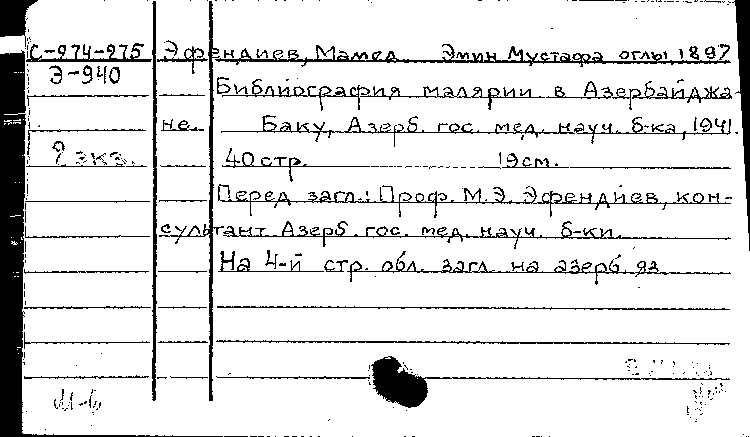 С-274-275 Эфендиев, Мамед Эмин Мустафа оглы, 1897
Э-940
Библиография малярии в Азербайджа-
не. Баку, Азерб. гос. мед. науч. б-ка, 1941.
2 экз. 40 стр. 19 см.
Перед загл.: Проф. М.Э. Эфендиев, кон-
сультант Азерб. гос. мед. науч. б-ки.
На 4-й стр. обл. загл. на азерб. яз.
М-б